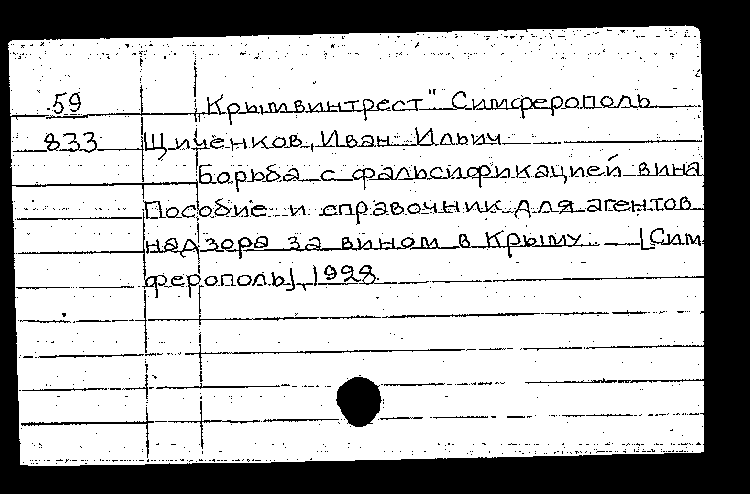 59
833
„Крымвинтрест" Симферополь
Щиченков, Иван Ильич
Борьба с фальсификацией вина
Пособие и справочник для агентов
надзора за вином в Крыму. – [Сим
ферополь], 1928.